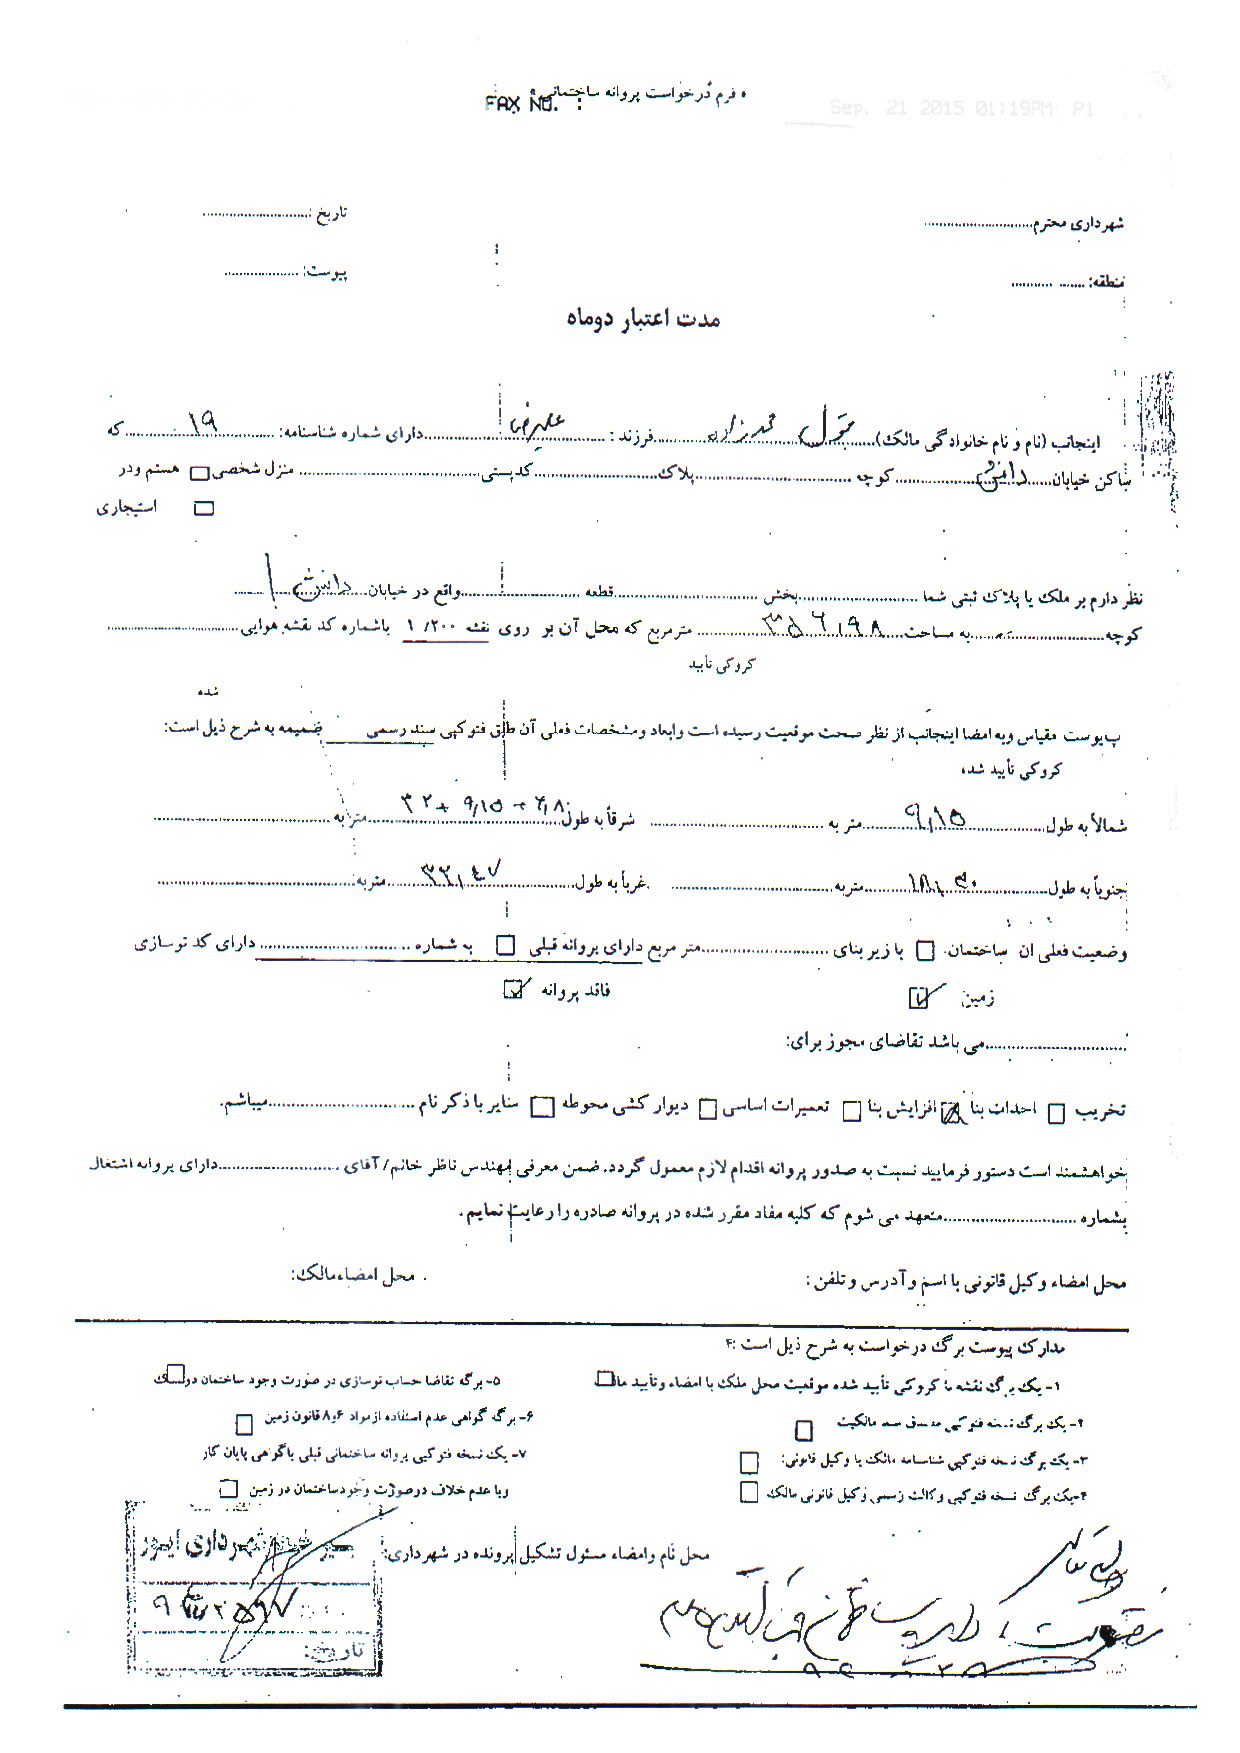 فرم درخواست پروانه ساختمانی
FAX NO. :
Sep. 21 2015 01:19PM P1
شهرداری محترم............................ تاریخ :............................
منطقه: ................. پیوست: ...................
مدت اعتبار دوماه
اینجانب (نام و نام خانوادگی مالک)............ فرزند : علیرضا دارای شماره شناسنامه: ۱۹ که
ساکن خیابان دانش کوچه ............ پلاک ............ کدپستی ............ منزل شخصی □ هستم ودر
استیجاری □
نظر دارم بر ملک با پلاک ثبتی شما ............ بخش ............ قطعه ............ واقع در خیابان دانش ۱
کوچه ............ به مساحت ۳۵۶,۹۸ مترمربع که محل آن بر روی نقشه ۱/۲۰۰ باشماره کد نقشه هوایی ............
کروکی تأیید
شده
پیوست مقیاس وبه امضا اینجانب از نظر صحت موقعیت رسیده است وابعاد ومشخصات فعلی آن طبق فتوکپی سند رسمی ضمیمه به شرح ذیل است:
کروکی تأیید شده
شمالاً به طول ۹,۱۵ متر به ............ شرقاً به طول ۲,۸ + ۹,۱۵ + ۳۲ متر به ............
جنوباً به طول ۱۸,۳۰ متر به ............ غرباً به طول ۳۲,۴۷ متر به ............
وضعیت فعلی آن ساختمان □ با زیر بنای ............ متر مربع دارای پروانه قبلی □ به شماره ............ دارای کد نوسازی
زمین ☑ فاقد پروانه ☑
............می باشد تقاضای مجوز برای:
تخریب □ احداث بنا ☑ افزایش بنا □ تعمیرات اساسی □ دیوار کشی محوطه □ سایر با ذکر نام ............ میباشم.
خواهشمند است دستور فرمایید نسبت به صدور پروانه اقدام لازم معمول گردد. ضمن معرفی مهندس ناظر خانم/ آقای ............ دارای پروانه اشتغال
بشماره ............ متعهد می شوم که کلیه مفاد مقرر شده در پروانه صادره را رعایت نمایم.
محل امضاء وکیل قانونی با اسم و آدرس و تلفن : محل امضاءمالک:
مدارک پیوست برگ درخواست به شرح ذیل است :
۱- یک برگ نقشه یا کروکی تأیید شده موقعیت محل ملک با امضاء وتأیید مالک □ ۵- برگه تقاضا حساب نوسازی در صورت وجود ساختمان در ملک □
۲- یک برگ نسخه فتوکپی مصدق سند مالکیت □ ۶- برگ گواهی عدم استفاده از مواد ۶و۸ قانون زمین □
۳- یک برگ نسخه فتوکپی شناسنامه مالک یا وکیل قانونی: □ ۷- یک نسخه فتوکپی پروانه ساختمانی قبلی یا گواهی پایان کار
۴-یک برگ نسخه فتوکپی وکالت رسمی وکیل قانونی مالک □ ویا عدم خلاف درصورت وجود ساختمان در زمین □
محل نام وامضاء مسئول تشکیل پرونده در شهرداری:
شهرداری
تاریخ: